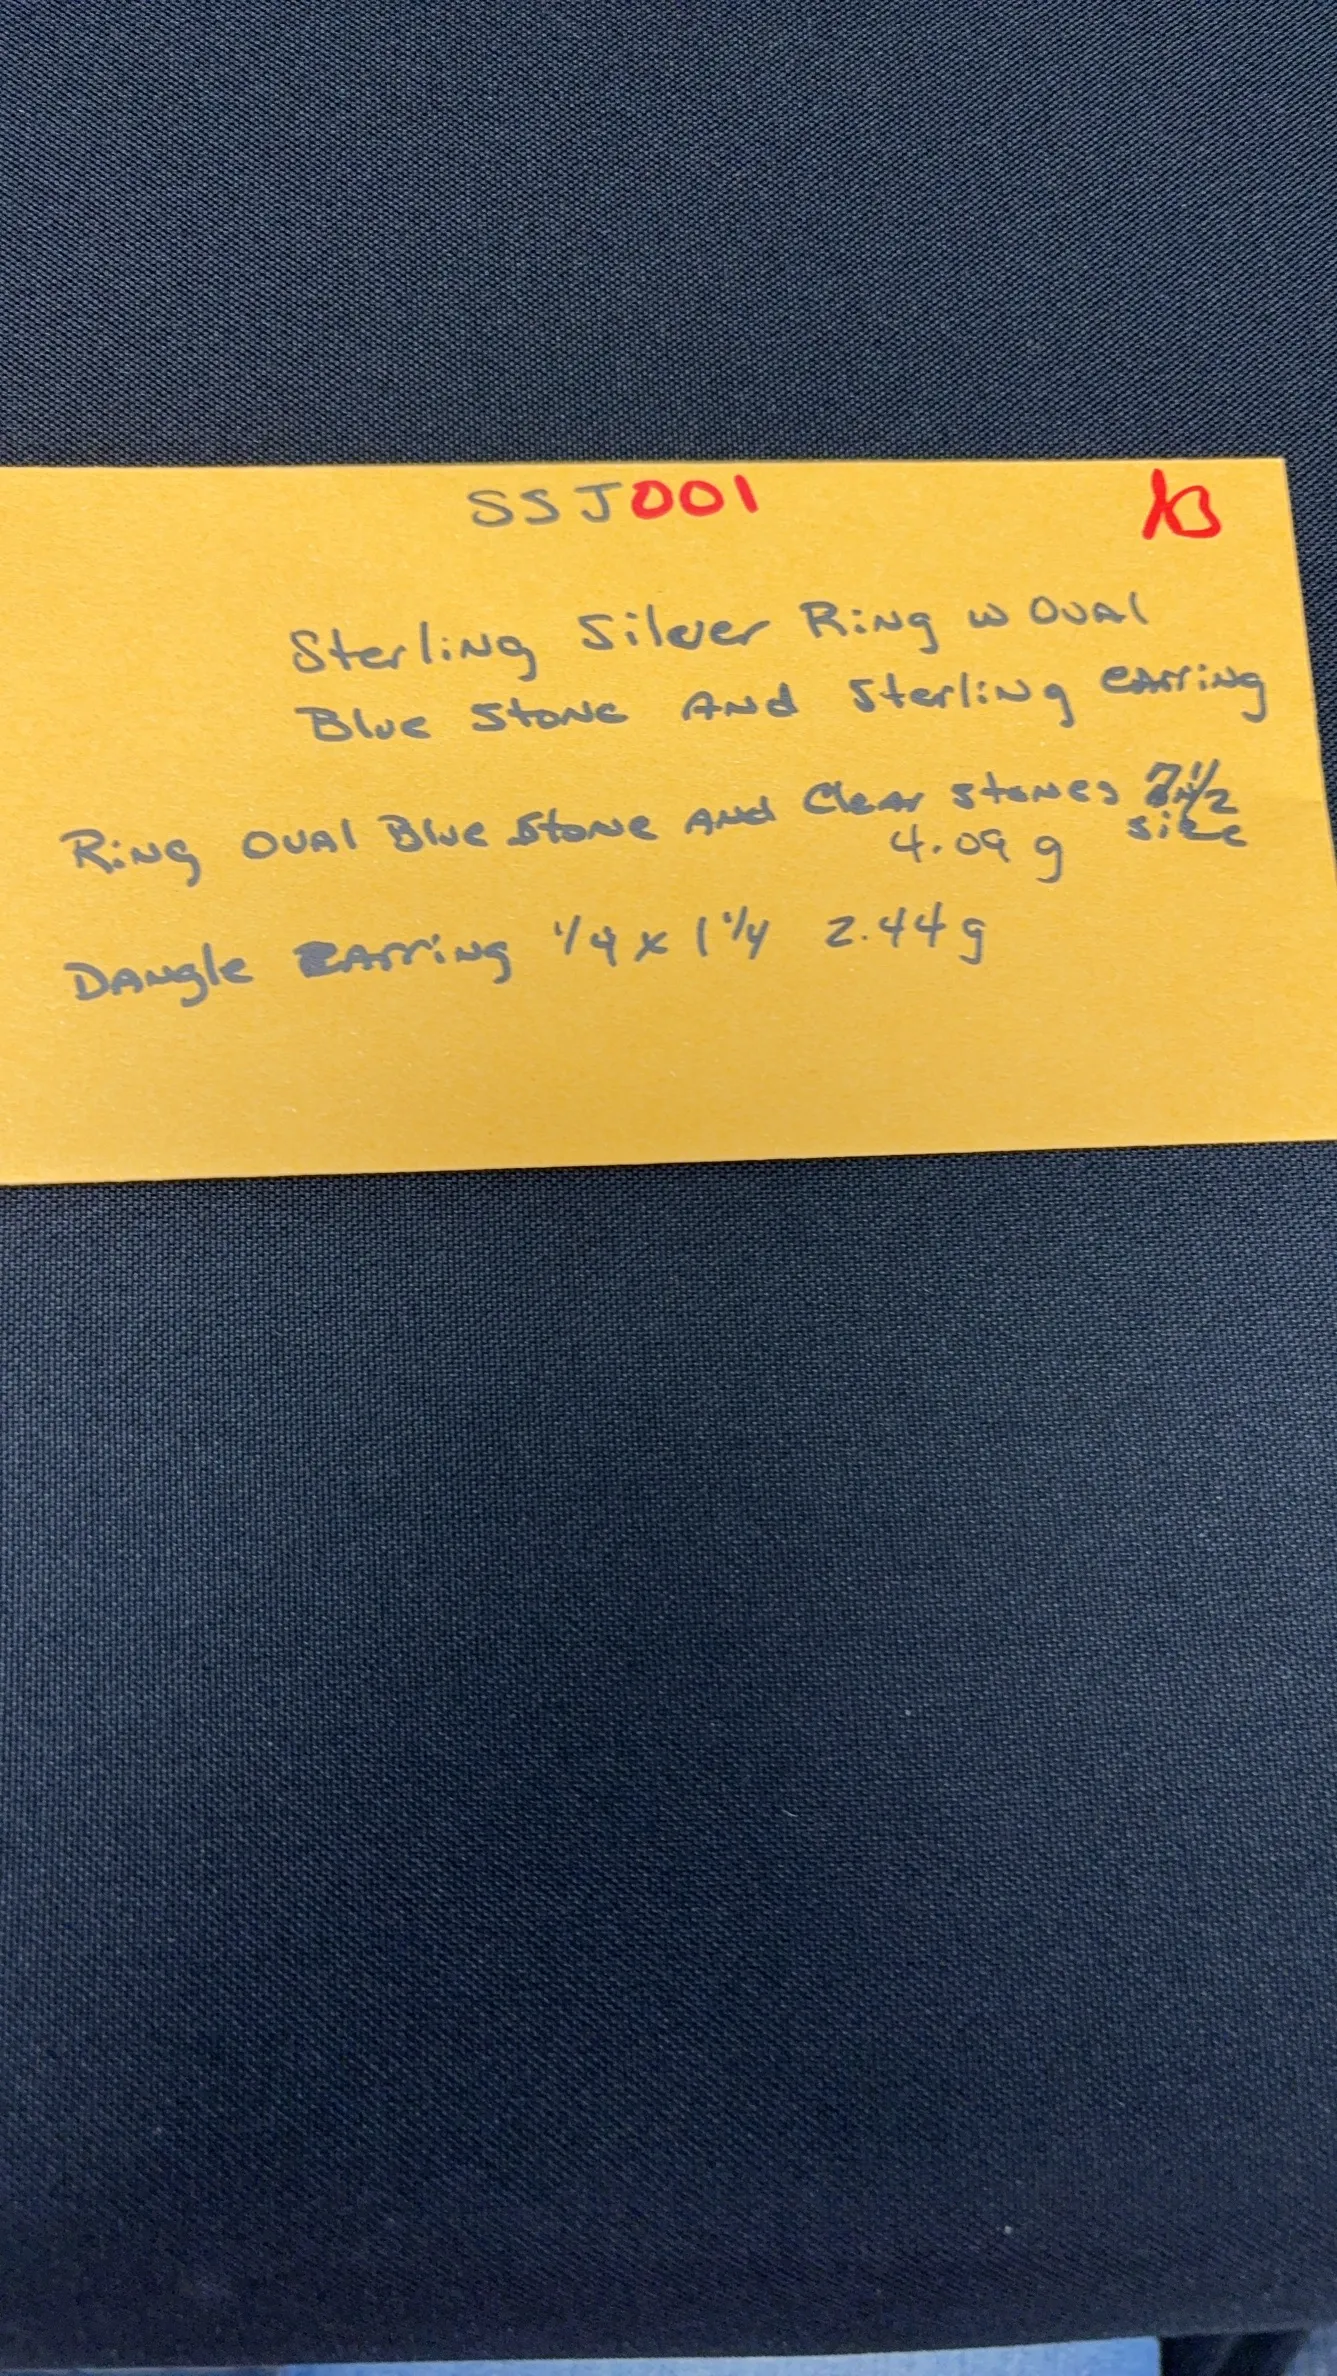 SSJ001
Sterling Silver Ring w Oval
Blue Stone And Sterling earring
Ring Oval Blue Stone And Clear stones 7 1/2
size
4.09 g
Dangle Earring 1/4 x 1 1/4 2.44g